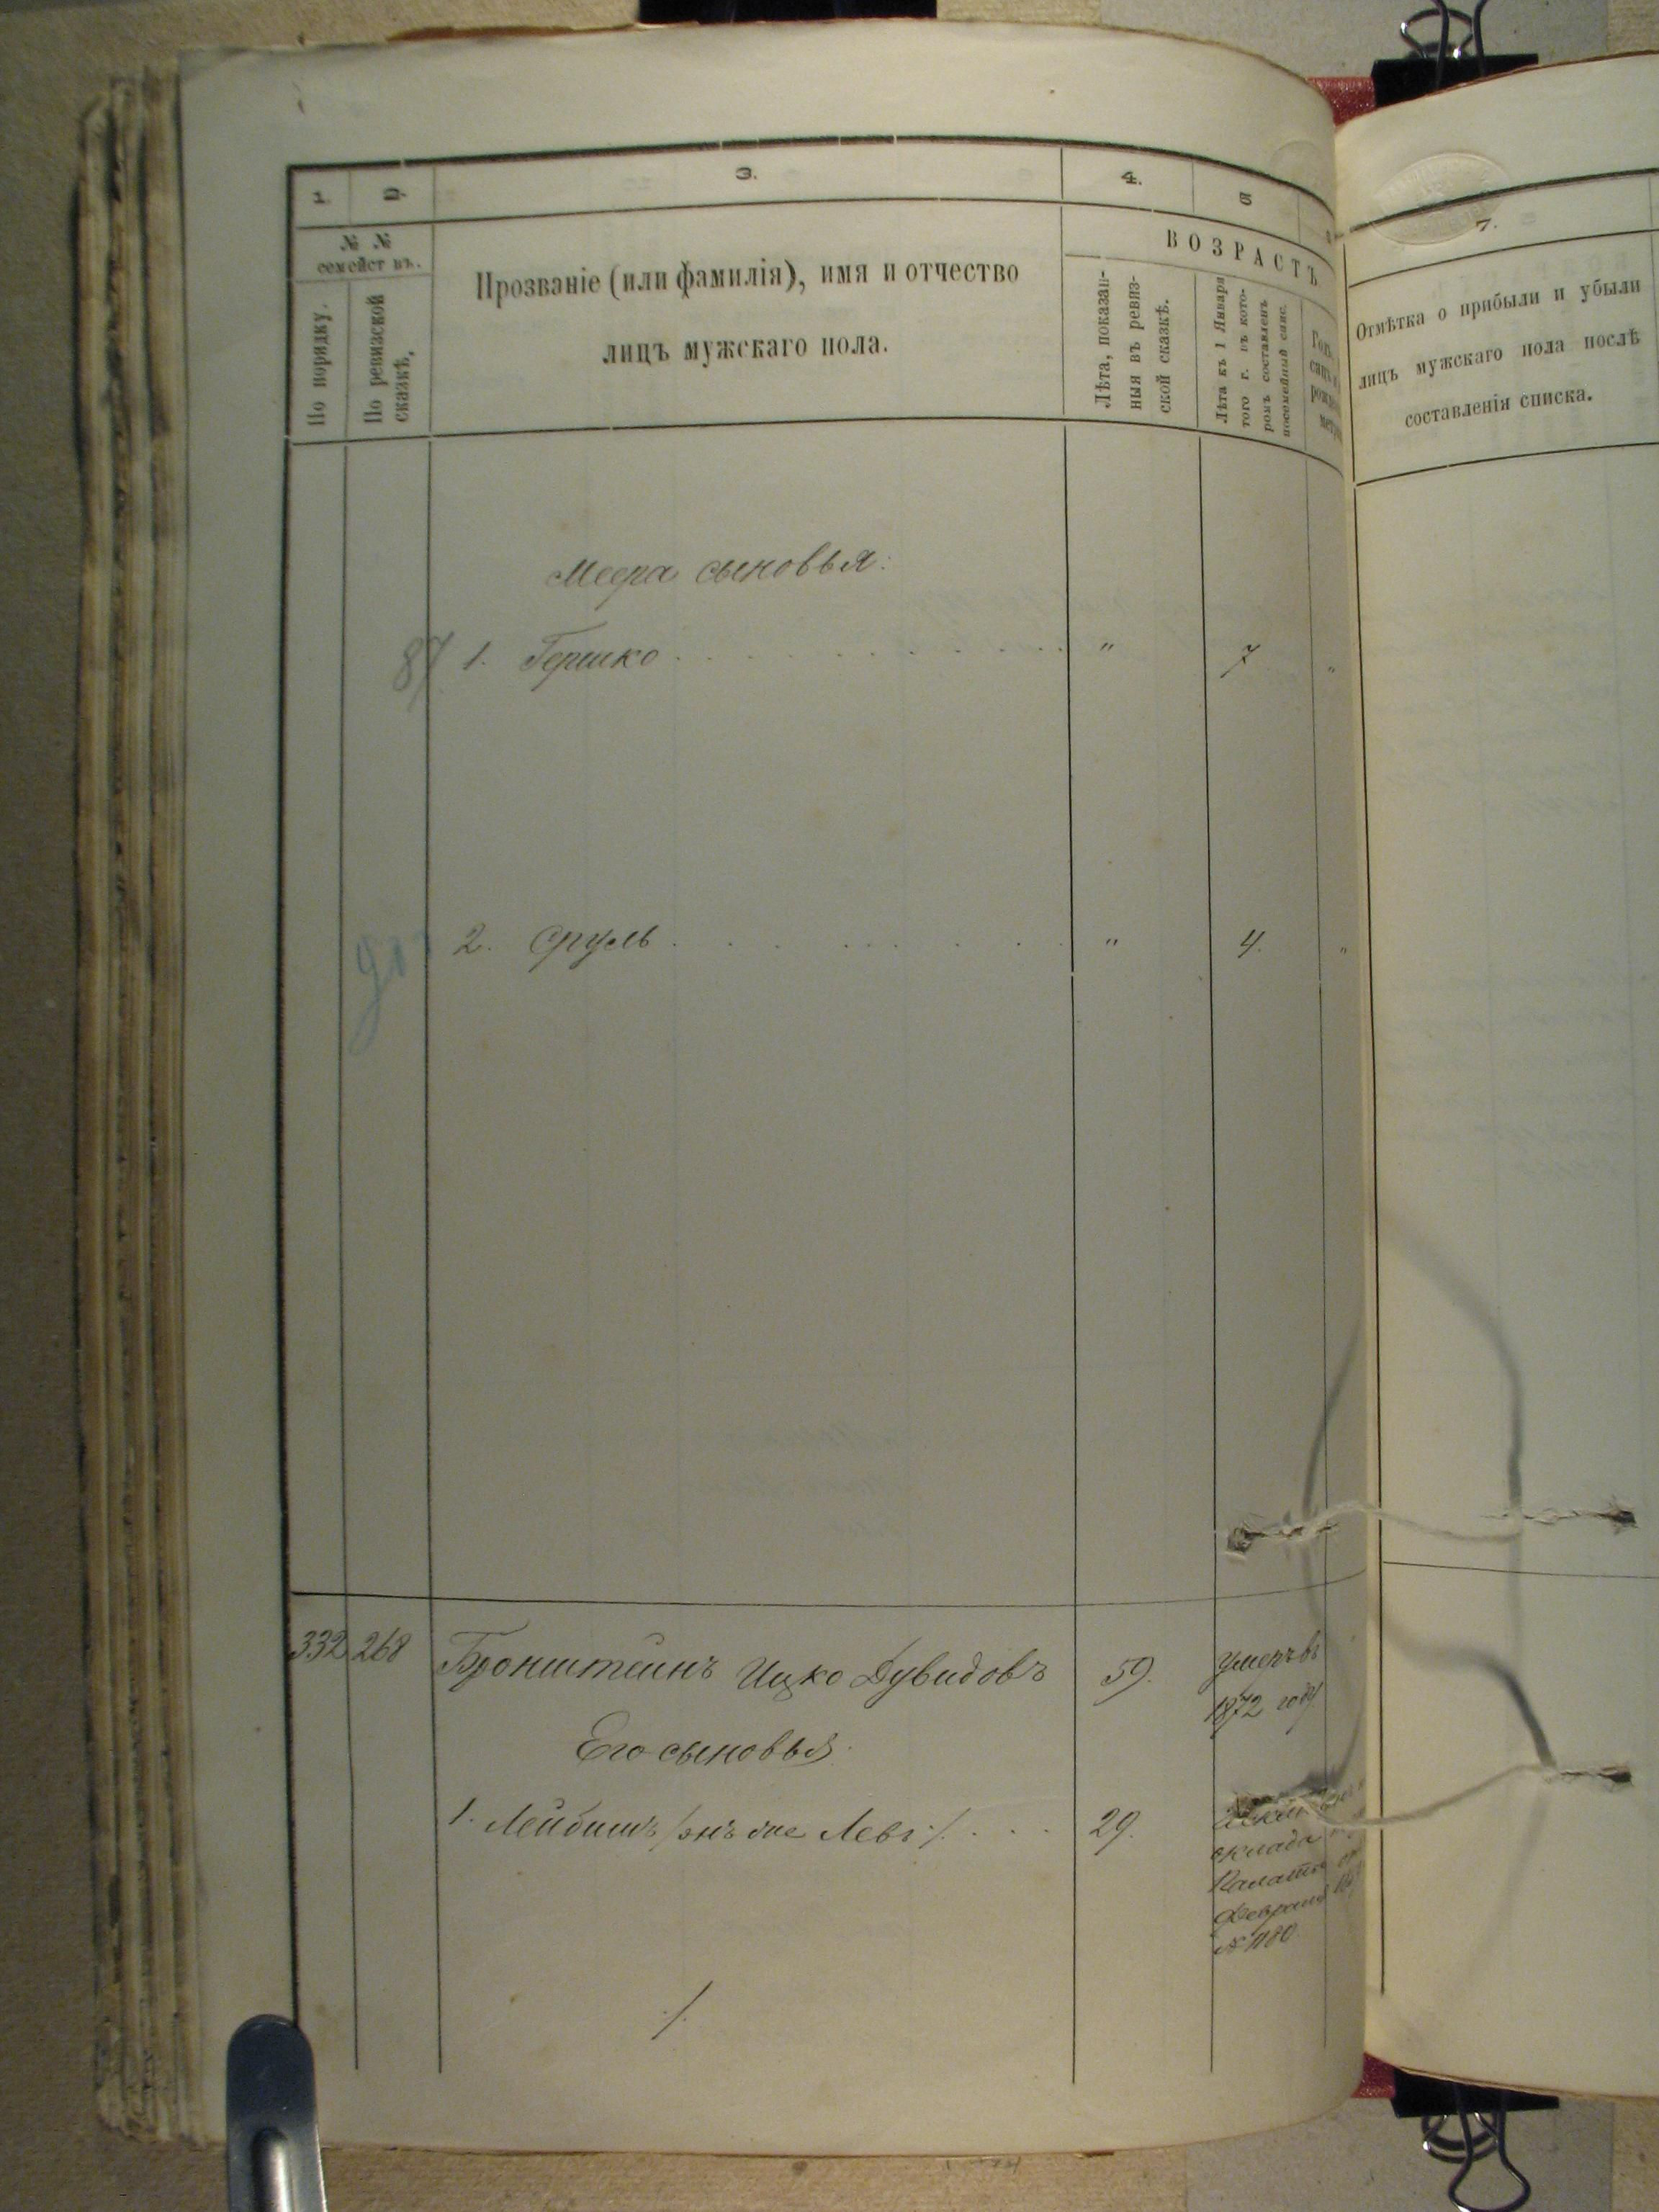 1. 2. 3. 4. 5
№ №
семействъ.
По порядку.
По ревизской
сказкѣ.
Прозваніе (или фамилія), имя и отчество
лицъ мужскаго пола.
ВОЗРАСТЪ
Лѣта, показан-
ныя въ ревиз-
ской сказкѣ.
Лѣта къ 1 Января
того г. въ кото-
ромъ составленъ
посемейный спис.
Меера сыновья:
87 1. Гершко " 7 "
2. Сруль " 4. "
332 268 Бронштейнъ Ицко Дувидовъ 59. Умеръ въ
1872 году
Его сыновья
1. Лейбишъ /онъ же Левъ/. 29.
оклада
Палаты
Февраля
№ 1180
7.
Отмѣтка о прибыли и убыли
лицъ мужскаго пола послѣ
составленія списка.